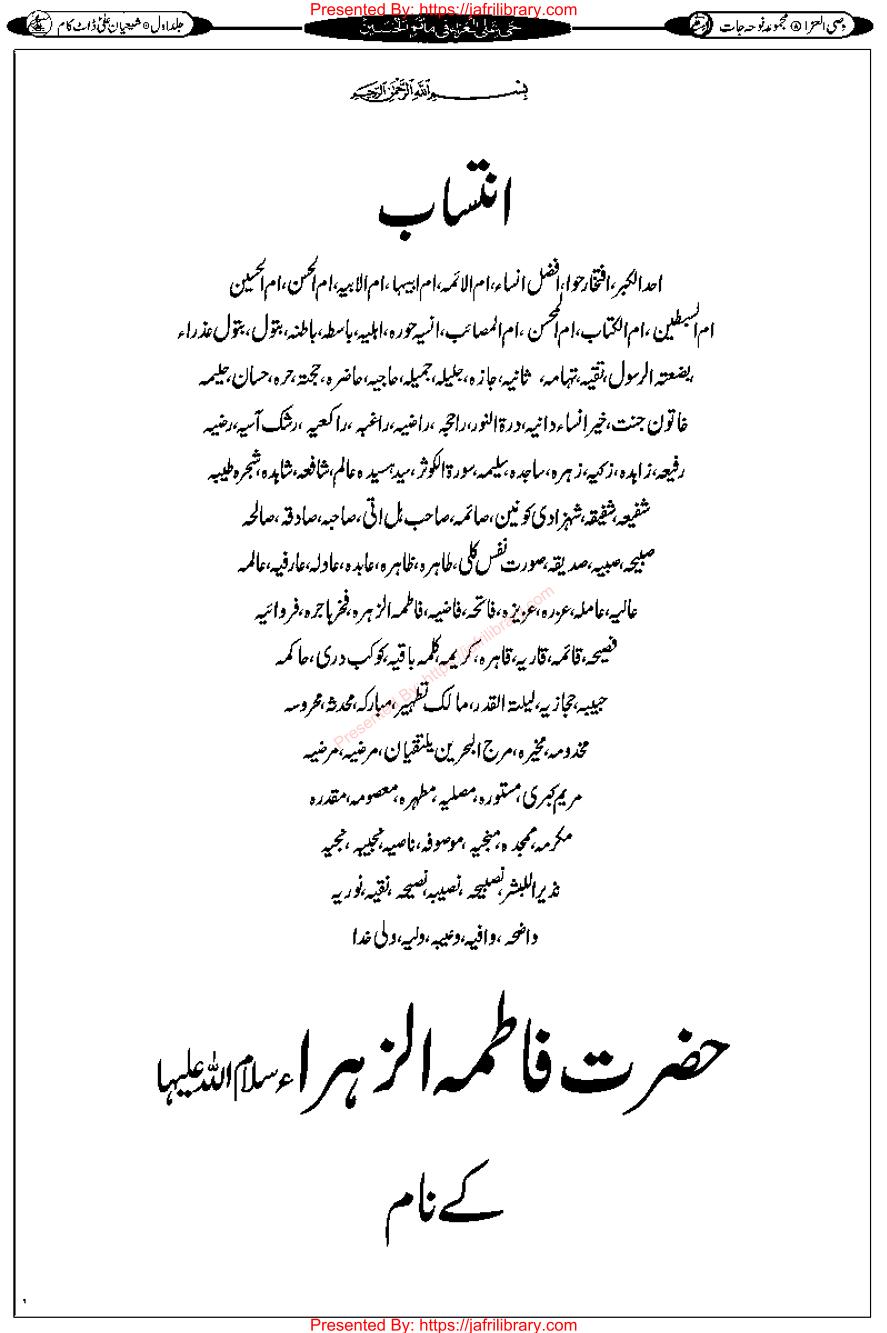 Presented By: https://jafrilibrary.com
وصی العزا ۞ مجموعہ نوحہ جات
حَیَّ عَلَی الْعَزَا فِی مَاتَمِ الْحُسَیْن
جلد اول ۞ شیعیان علیؑ ڈاٹ کام
بسم اللہ الرحمن الرحیم
انتساب
احد الکبر، افتخار حوا، افضل انساء، ام الائمہ، ام ابیہا، ام الابیہ، ام الحسن، ام الحسین
ام السبطین، ام الکتاب، ام المحسن، ام المصائب، انسیہ حورہ، اہلیہ، باسطہ، باطنہ، بتول، بتول عذراء
بضعتہ الرسول، نقیہ، تہامہ، ثانیہ، جازہ، جلیلہ، جمیلہ، حاجیہ، حاضرہ، حجتہ، حرہ، حسان، حلیمہ
خاتون جنت، خیر انساء دانیہ، درۃ النور، راجحہ، راضیہ، راغبہ، راکعیہ، رشک آسیہ، رضیہ
رفیعہ، زاہدہ، زکیہ، زہرہ، ساجدہ، سلیمہ، سورۃ الکوثر، سیدہ سیدہ عالم، شافعہ، شاہدہ، شجرہ طیبہ
شفیعہ، شفیقہ، شہزادی کونین، صائمہ، صاحب ہل اتی، صاحبہ، صادقہ، صالحہ
صبیحہ، صبیہ، صدیقہ، صورت نفس کلی، طاہرہ، ظاہرہ، عابدہ، عادلہ، عارفیہ، عالمہ
عالیہ، عاملہ، عزرہ، عزیزہ، فاتحہ، فاضیہ، فاطمہ الزہرہ، فخر ہاجرہ، فروائیہ
فصیحہ، قائمہ، قاریہ، قاہرہ، کریمہ، کلمہ باقیہ، کوکب دری، حاکمہ
حبیبہ، حجازیہ، لیلتہ القدر، مالک تطہیر، مبارکہ، محدثہ، محروسہ
مخدومہ، مخیرہ، مرج البحرین یلتقیان، مرضیہ، مرضیہ
مریم کبری، مستورہ، مصلیہ، مطہرہ، معصومہ، مقدرہ
مکرمہ، ممجدہ، منجیہ، موصوفہ، ناصیہ، نجیبہ، نجیہ
نذیرا للبشر، نصبیحہ، نصیبہ، نصیحہ، نقیہ، نوریہ
داضحہ، وافیہ، وعیبہ، ولیہ، ولی خدا
حضرت فاطمہ الزہراء سلام اللہ علیہا
کے نام
Presented By: https://jafrilibrary.com
۱
Presented By: https://jafrilibrary.com